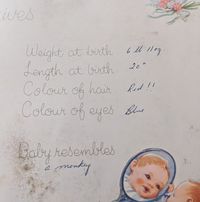 ives
Weight at birth 6 lb 11oz.
Length at birth 20"
Colour of hair Red !!
Colour of eyes Blue
Baby resembles
a monkey